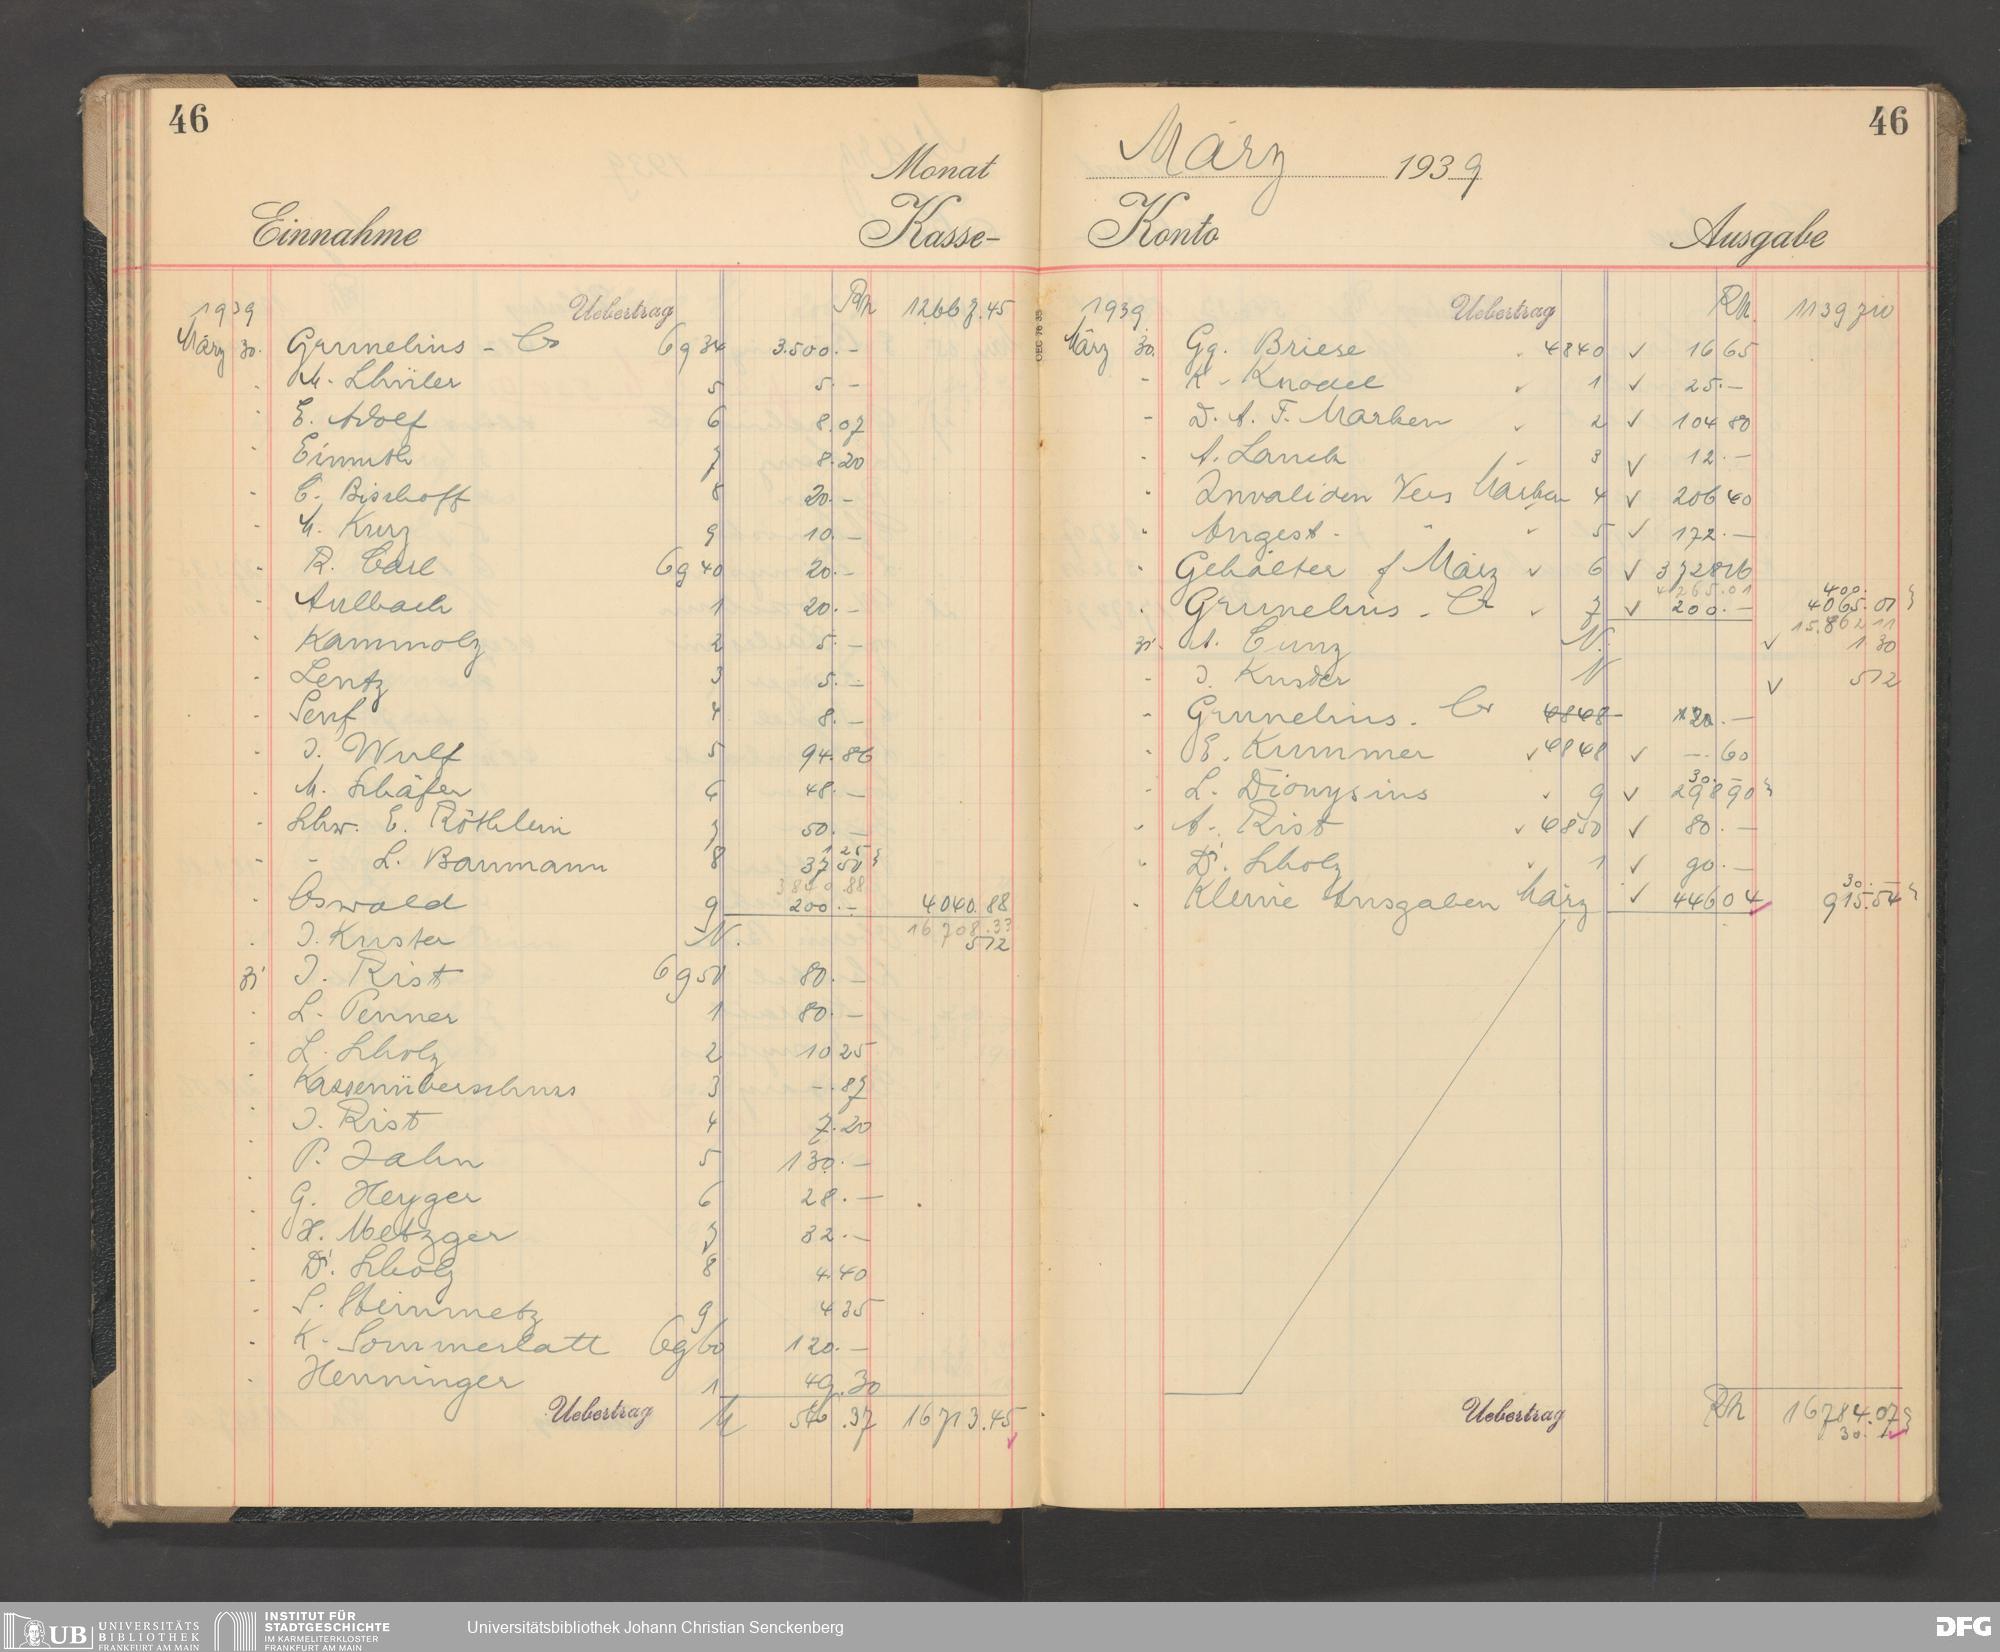 46
Monat
Einnahme Kasse-
1939 Uebertrag Rm 12667.45
März 30. Grunelius - Co 6934 3.500.-
- M. Schüler 5 5.-
- E. Adolf 6 8.07
- Einmth 7 8.20
- C. Bischoff 8 20.-
- M. Kurz 9 10.-
- R. Carl 6940 20.-
- Aulbach 1 20.-
- Kammolz 2 5.-
- Lentz 3 5.-
- Senf 4 8.-
- J. Wulf 5 94.86
- M. Schäfer 6 48.-
- Schw. E. Röthlein 7 50.-
1 25
- - L. Baumann 8 37 50
3840.88
- Oswald 9 200.- 4040.88
16708.33
- J. Kuster N. 512
31 J. Rist 6950 80.-
- L. Penner 1 80.-
- L. Scholz 2 10 25
- Kassenüberschuss 3 -.87
- J. Rist 4 7.20
- P. Jahn 5 130.-
- G. Heyger 6 28.-
- H. Metzger 7 32.-
- Dr. Scholz 8 4.40
- S. Steinmetz 9 4 35
- K. Sommerlatt 6960 120.-
- Henninger 1 49.30
Uebertrag M 546.37 16713.45
46
März 1939
Konto Ausgabe
1939 Uebertrag Rm. 11397 10
März 30. Gg. Briese 4840 ✓ 16 65
- K. Knodel 1 ✓ 25.-
- D. A. F. Marken 2 ✓ 104 80
- A. Lauck 3 ✓ 12.-
- Invaliden Vers Marken 4 ✓ 206 40
- Angest. " 5 ✓ 172.-
- Gehälter f März 6 ✓ 3728 16
4265.01 400.
- Grunelius - Co 7 ✓ 200.- 4065.01
15.862 11
31. A. Cunz N. ✓ 1.30
- J. Kuster N ✓ 512
- Grunelius - Co 4848 120.-
- E. Kummer 4848 ✓ -.60
30.-
- L. Dionysius 9 ✓ 298 90
- A. Rist 4850 ✓ 80.-
- Dr. Scholz 1 ✓ 90.-
30.-
- Kleine Ausgaben März ✓ 446 04 915.54
Uebertrag Rm 16784.07
30.-
UB UNIVERSITÄTS
BIBLIOTHEK
FRANKFURT AM MAIN
INSTITUT FÜR
STADTGESCHICHTE
IM KARMELITERKLOSTER
FRANKFURT AM MAIN
Universitätsbibliothek Johann Christian Senckenberg
DFG